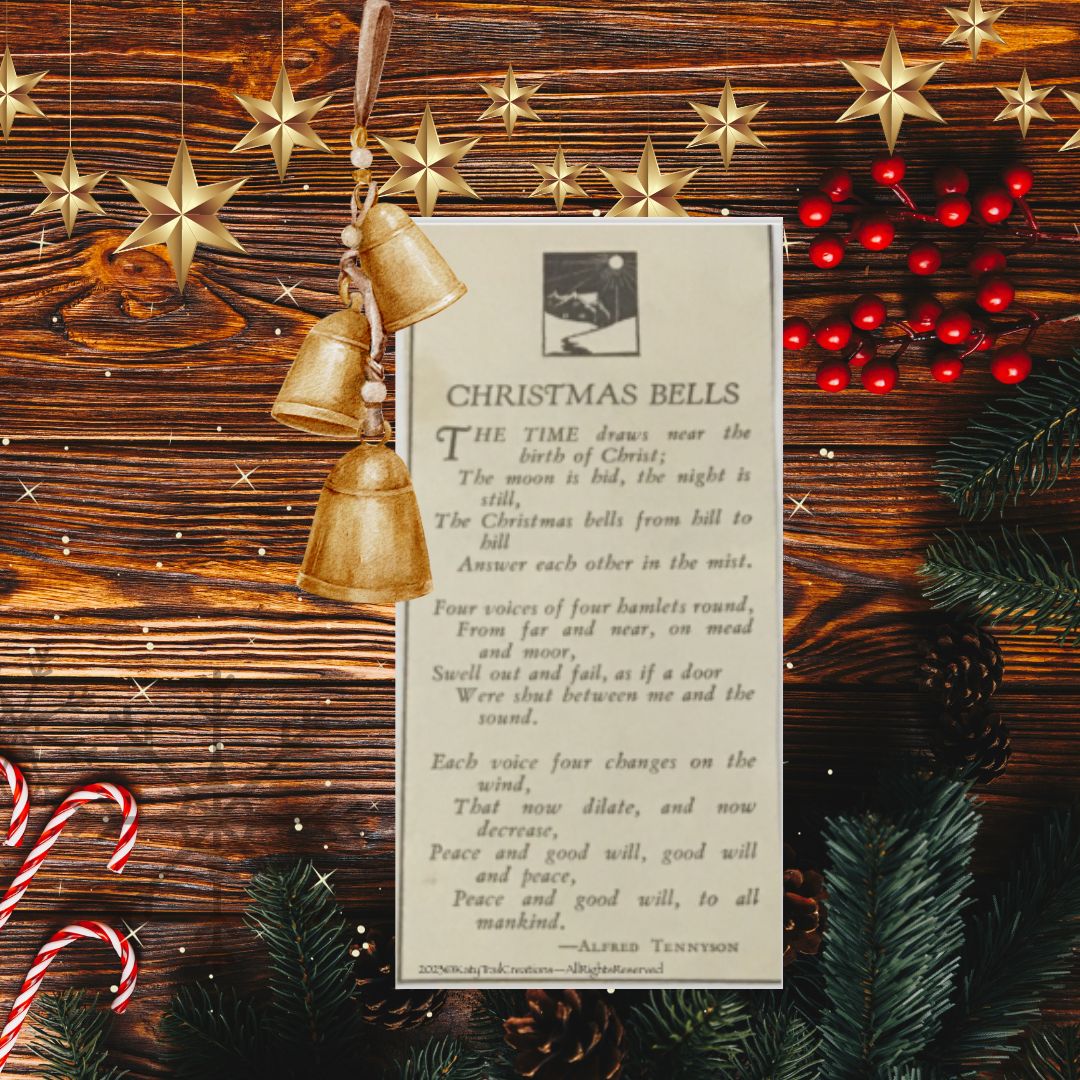 CHRISTMAS BELLS
THE TIME draws near the
birth of Christ;
The moon is hid, the night is
still,
The Christmas bells from hill to
hill
Answer each other in the mist.
Four voices of four hamlets round,
From far and near, on mead
and moor,
Swell out and fail, as if a door
Were shut between me and the
sound.
Each voice four changes on the
wind,
That now dilate, and now
decrease,
Peace and good will, good will
and peace,
Peace and good will, to all
mankind.
—ALFRED TENNYSON
2023©KatyTrailCreations—AllRightsReserved